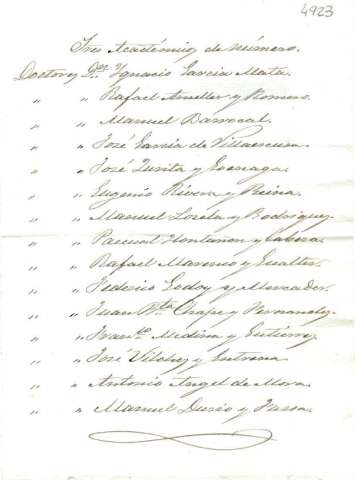 4923
Sres Académicos de número.
Doctores Dn. Ygnacio Garcia Mata.
" " Rafael Ameller y Romero.
" " Manuel Barrocal.
" " José Garcia de Villaescusa.
" " José Zurita y
" " Eugenio Rivera y Reina.
" " Manuel Losela y Rodriguez.
" " Pascual Hontañon y Cabeza.
" " Rafael Marenco y Gualter.
" " Federico Godoy y Mercader.
" " Juan Bta. Chape y Fernandez.
" " Franco. Medina y Gutierrez.
" " José Vilches y Entrena.
" " Antonio Angel de Mora.
" " Manuel Durio y